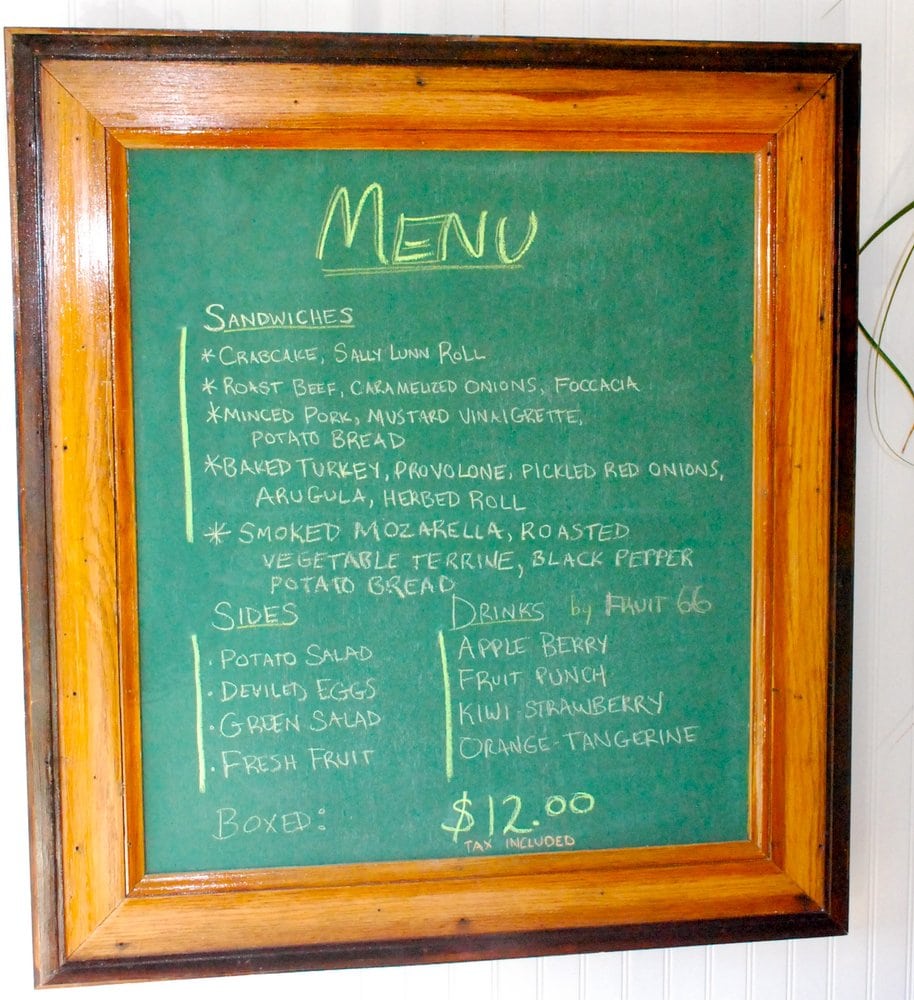 MENU
SANDWICHES
* CRABCAKE, SALLY LUNN ROLL
* ROAST BEEF, CARAMELIZED ONIONS, FOCCACIA
* MINCED PORK, MUSTARD VINAIGRETTE,
POTATO BREAD
* BAKED TURKEY, PROVOLONE, PICKLED RED ONIONS,
ARUGULA, HERBED ROLL
* SMOKED MOZARELLA, ROASTED
VEGETABLE TERRINE, BLACK PEPPER
POTATO BREAD
SIDES
· POTATO SALAD
· DEVILED EGGS
· GREEN SALAD
· FRESH FRUIT
DRINKS by FRUIT 66
APPLE BERRY
FRUIT PUNCH
KIWI-STRAWBERRY
ORANGE-TANGERINE
BOXED: $12.00
TAX INCLUDED